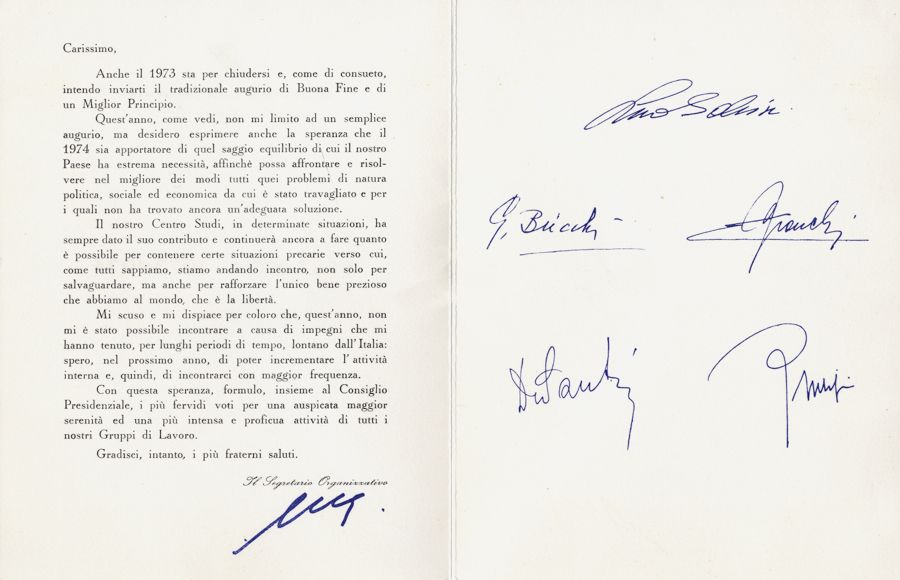 Carissimo,
Anche il 1973 sta per chiudersi e, come di consueto,
intendo inviarti il tradizionale augurio di Buona Fine e di
un Miglior Principio.
Quest'anno, come vedi, non mi limito ad un semplice
augurio, ma desidero esprimere anche la speranza che il
1974 sia apportatore di quel saggio equilibrio di cui il nostro
Paese ha estrema necessità, affinchè possa affrontare e risol-
vere nel migliore dei modi tutti quei problemi di natura
politica, sociale ed economica da cui è stato travagliato e per
i quali non ha trovato ancora un'adeguata soluzione.
Il nostro Centro Studi, in determinate situazioni, ha
sempre dato il suo contributo e continuerà ancora a fare quanto
è possibile per contenere certe situazioni precarie verso cui,
come tutti sappiamo, stiamo andando incontro, non solo per
salvaguardare, ma anche per rafforzare l'unico bene prezioso
che abbiamo al mondo, che è la libertà.
Mi scuso e mi dispiace per coloro che, quest'anno, non
mi è stato possibile incontrare a causa di impegni che mi
hanno tenuto, per lunghi periodi di tempo, lontano dall'Italia:
spero, nel prossimo anno, di poter incrementare l'attività
interna e, quindi, di incontrarci con maggior frequenza.
Con questa speranza, formulo, insieme al Consiglio
Presidenziale, i più fervidi voti per una auspicata maggior
serenità ed una più intensa e proficua attività di tutti i
nostri Gruppi di Lavoro.
Gradisci, intanto, i più fraterni saluti.
Il Segretario Organizzativo